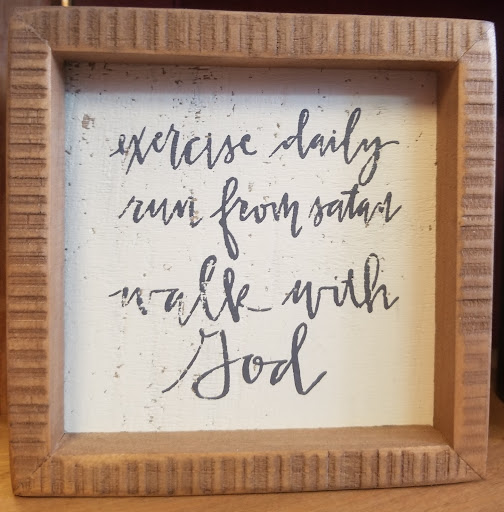 exercise daily
run from satan
walk with
God